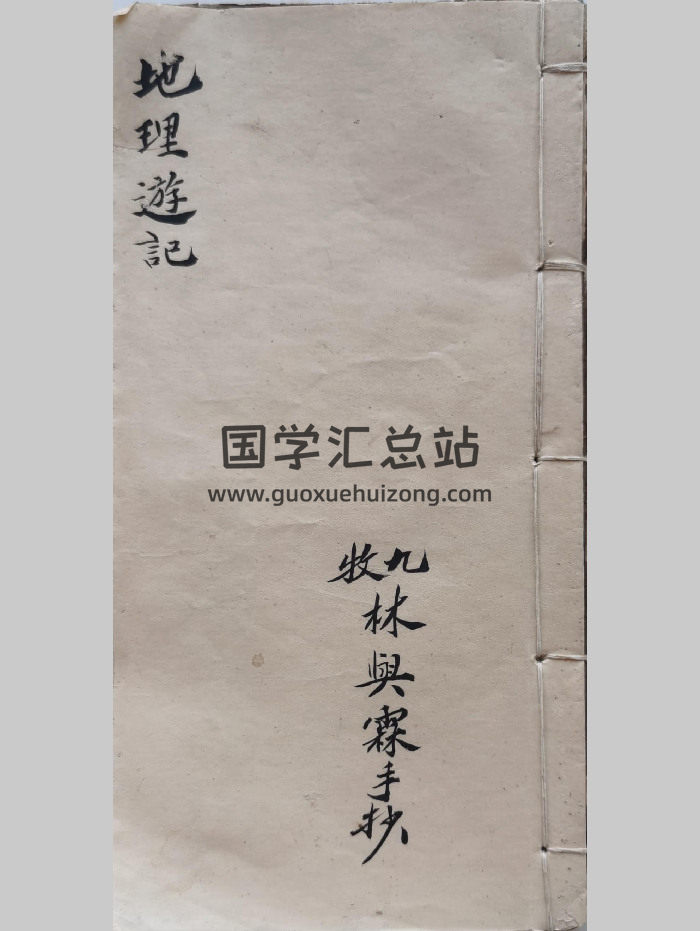 地理遊記
国学汇总站
www.guoxuehuizong.com
九牧
林興霖手抄